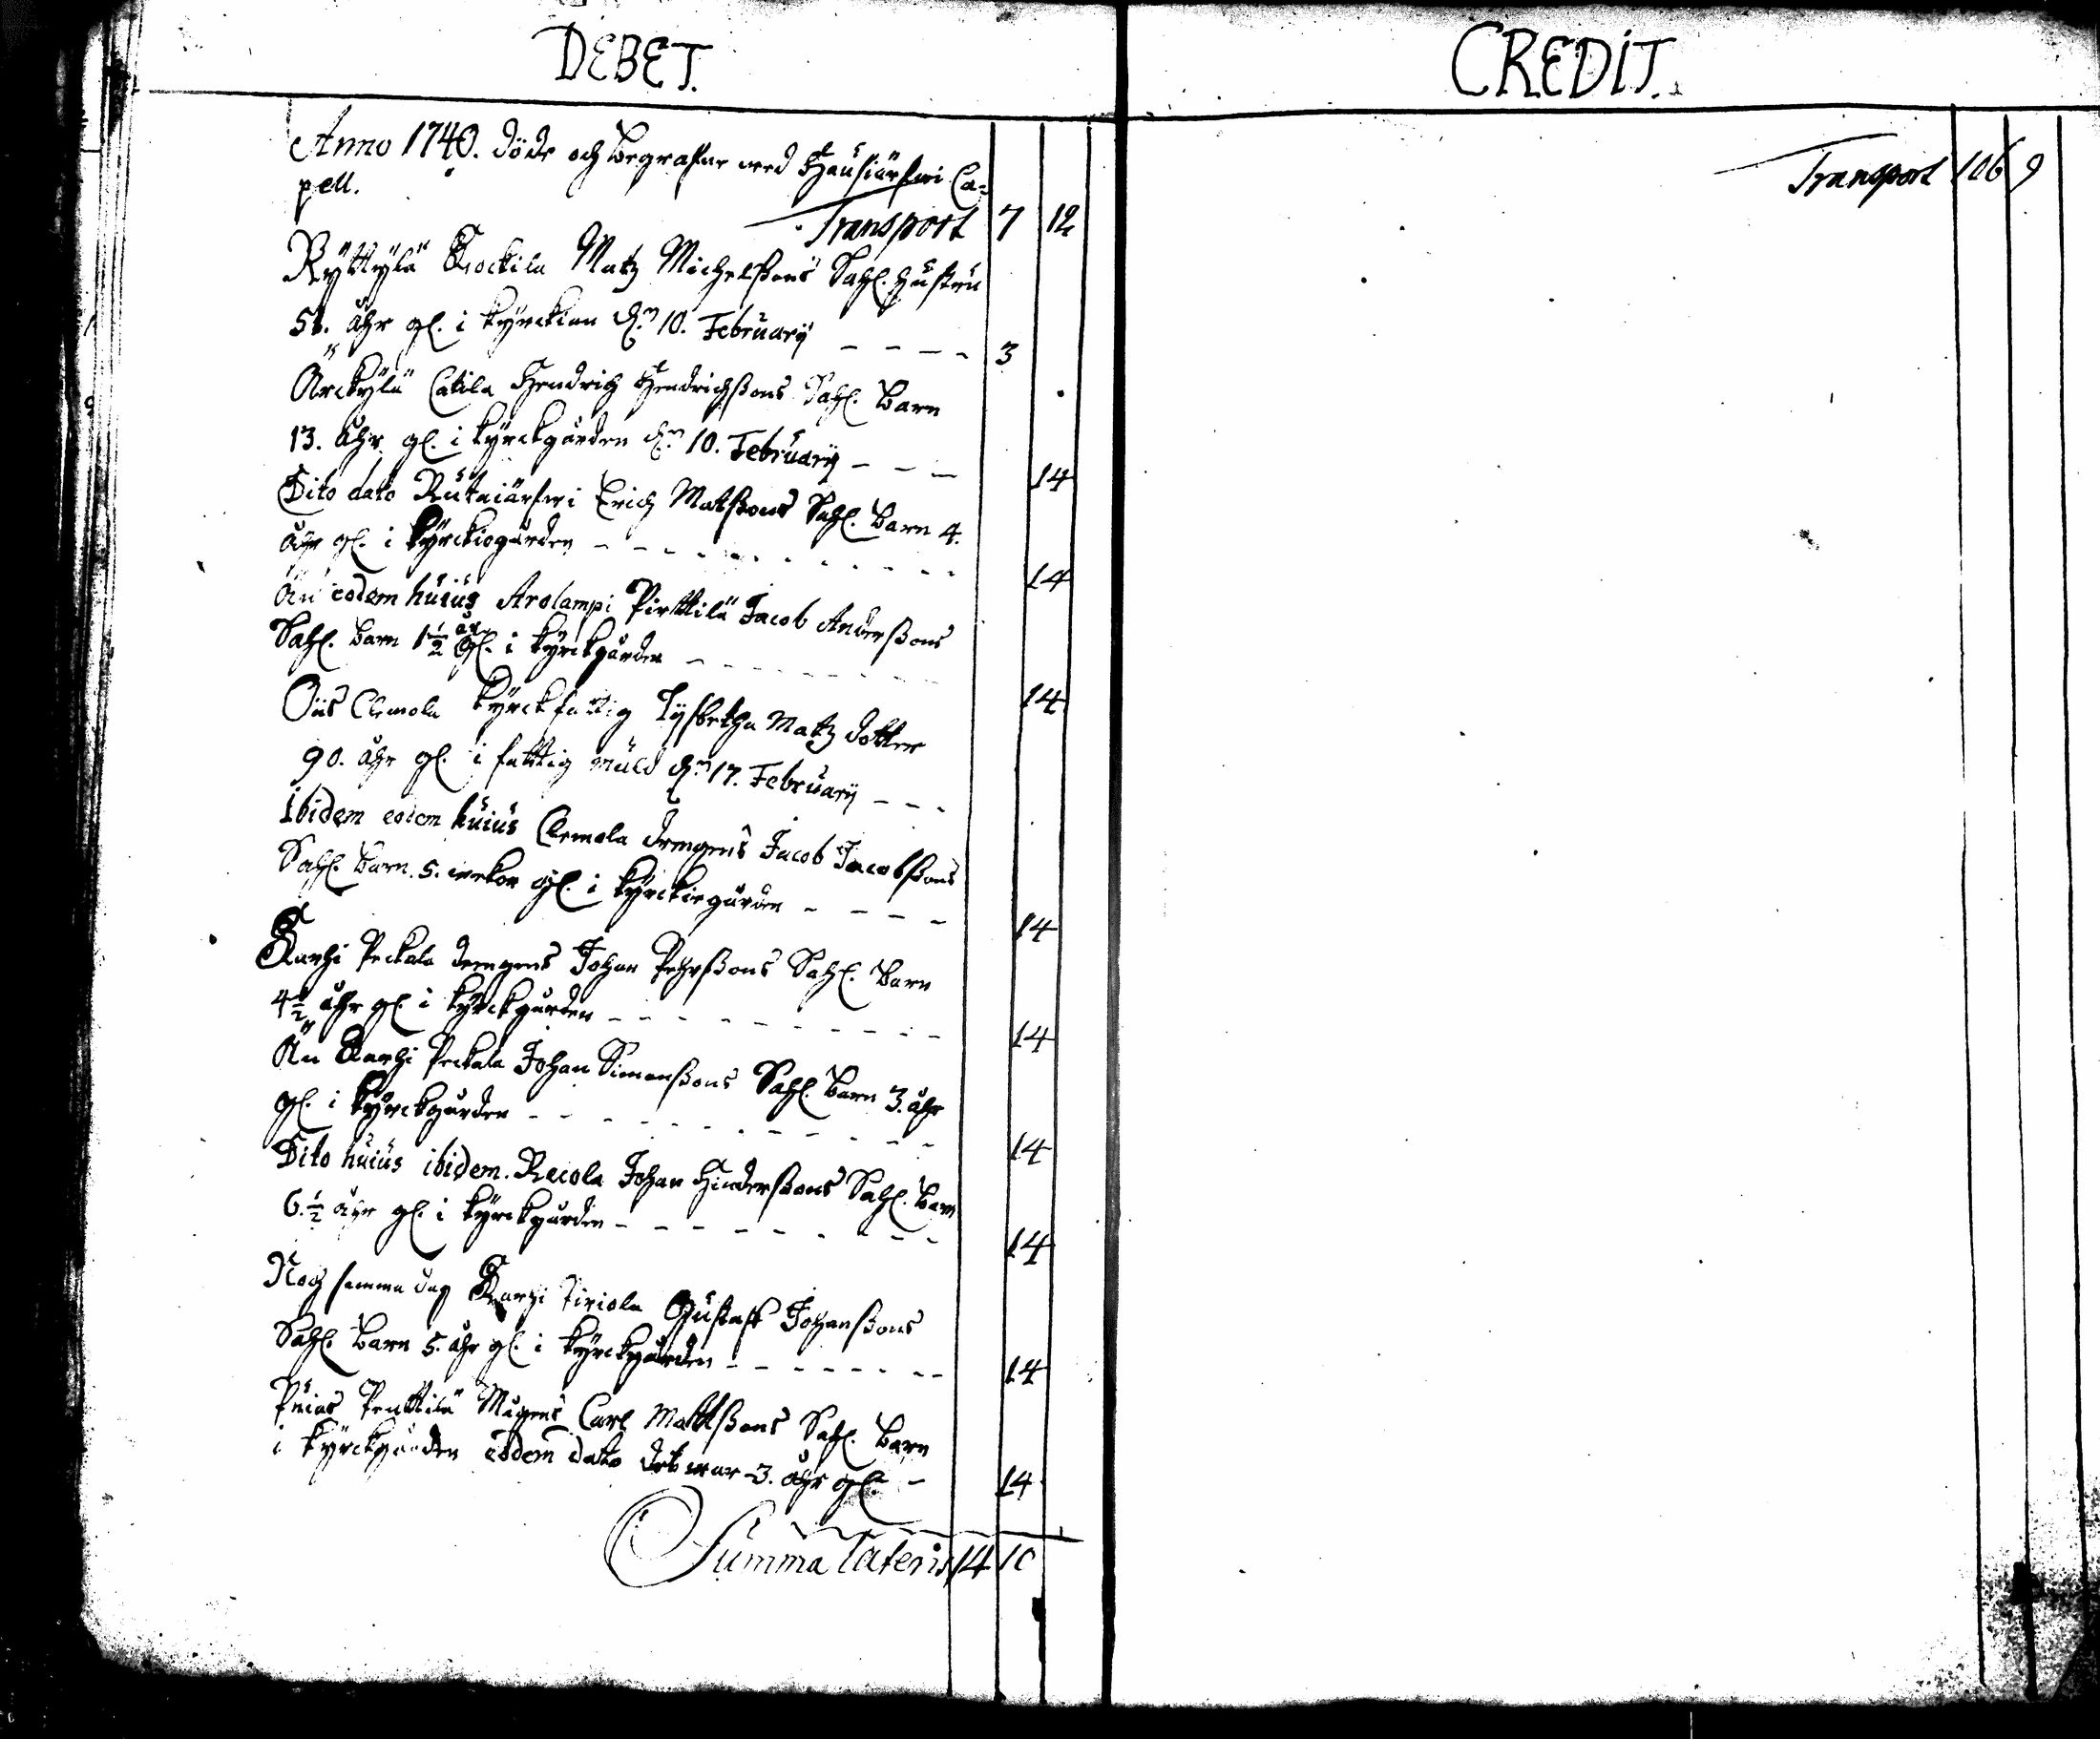 DEBET.
Anno 1740. döde och begrafne med Hausjärfwi Ca=
pell.
Transport 7 12
Ryttylä Kockila Matz Michelßons Sahl. hustru
51. åhr gl. i kyrckian d. 10. February - - - - 3
Årckylä Catila Hendrich Hendrichßons Sahl. barn
13. åhr gl. i kyrckgården d. 10. February - - - 14
Dito dato Rutaiärfwi Erich Matßons Sahl. barn 4.
åhr gl. i kyrckiogården - - - - 14
Än eodem huius Arolampi Pirttilä Jacob Anderßons
Sahl. barn 1 1/2 år gl. i kyrckgården - - - 14
Oiis Clemola kyrckfattig Lysbetha Matz dotter
90. åhr gl. i fattig muld d. 17. February - - -
Ibidem eodem huius Clemola drengens Jacob Jacobßons
Sahl. barn. 5. wekor gl. i kyrckiegården - - - - 14
Karhi Peckala drengens Johan Pehrßons Sahl. barn
4 1/2 åhr gl. i kyrckgården - - - - 14
Än Karhi Peckala Johan Simonßons Sahl. barn 3. åhr
gl. i kyrckgården - - - - 14
Dito huius ibidem. Recola Johan Hinderßons Sahl. barn
6. 1/2 åhr gl. i kyrckgården - - - - 14
Noch samma dag Karhi Tiriola Gustaff Johanßons
Sahl. barn 5. åhr gl. i kyrckgården - - - - 14
Puias Penttilä Mågens Carl Mattßons Sahl. barn
i kyrckgården eodem dato det war 3. åhr gl. - 14
Summa Lateris 14 10
CREDIT.
Transport 106 9